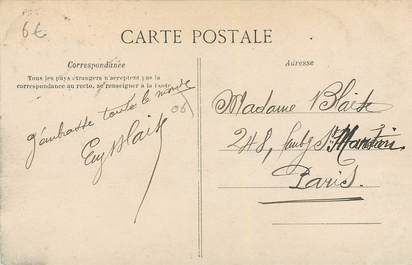 6€
CARTE POSTALE
Correspondance
Tous les pays étrangers n'acceptent pas la
correspondance au recto, se renseigner à la Poste
J'embrasse toute le monde
06
Eug Blaik
Adresse
Madame Blaik
248, faubg St Martin
Paris.